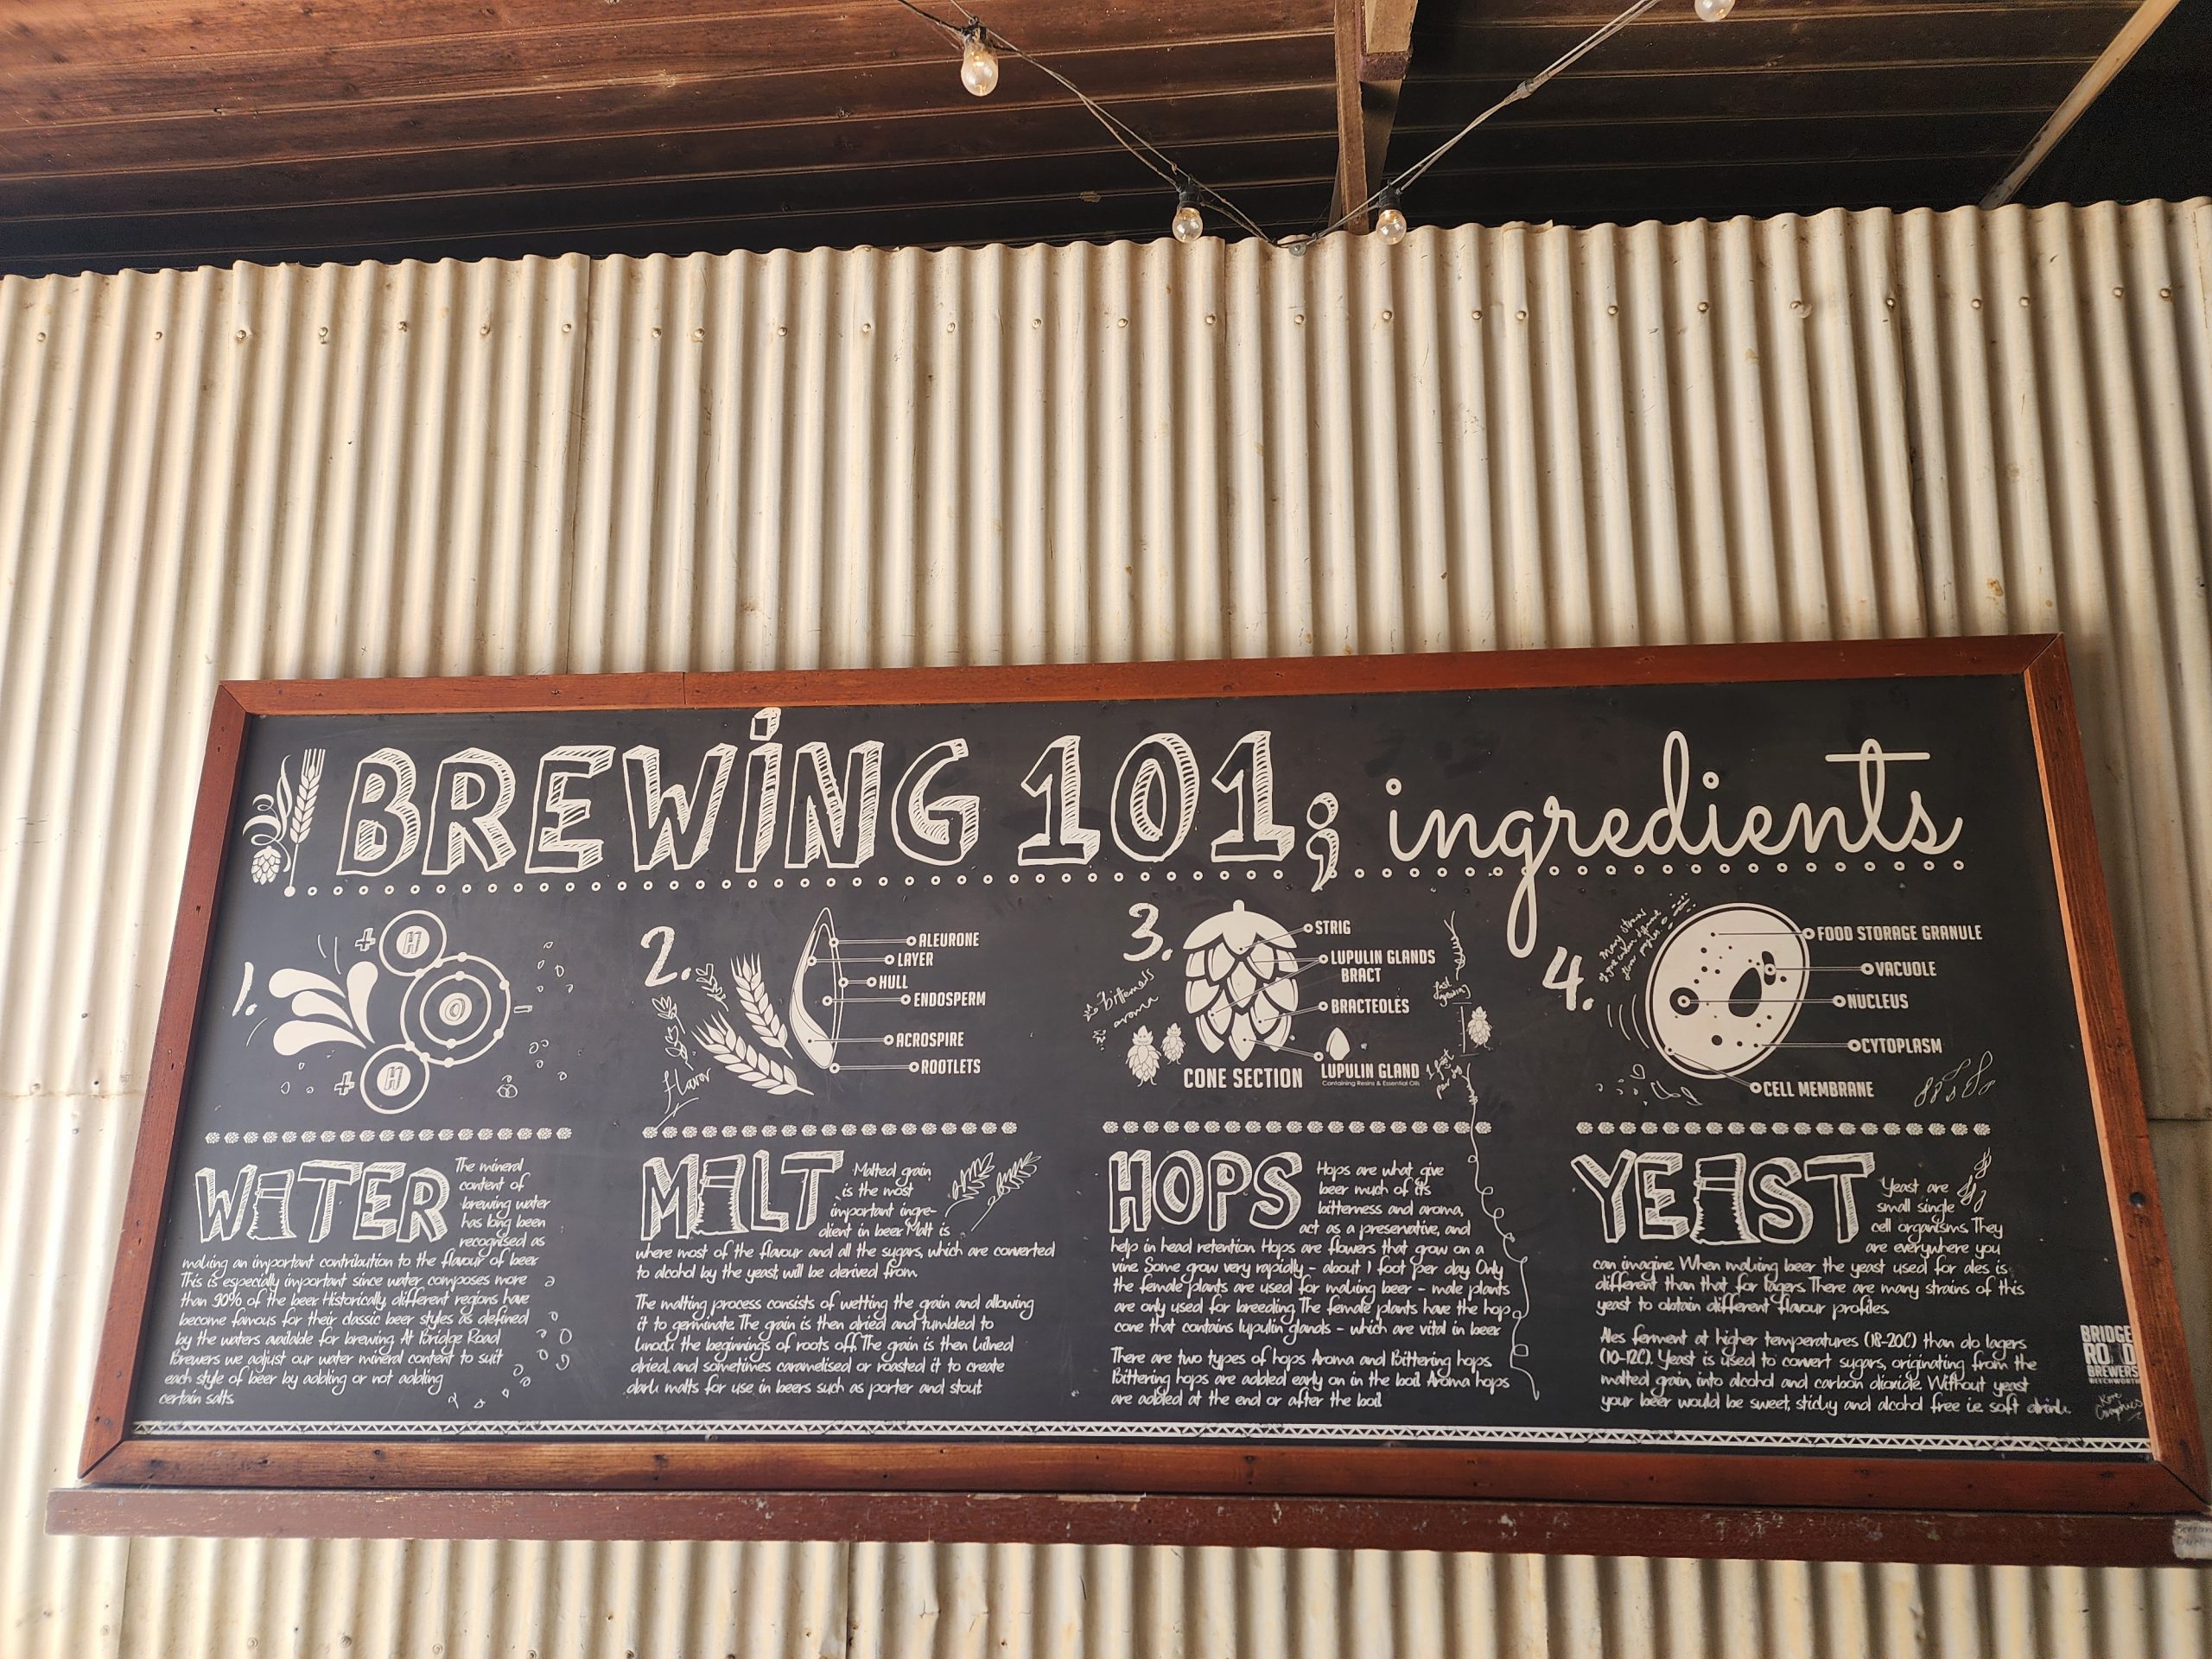 BREWiNG 101; ingredients
1.
+ H
O
-
+ H
2.
ALEURONE
LAYER
HULL
ENDOSPERM
ACROSPIRE
ROOTLETS
flavor
3.
bitterness
aroma
STRIG
LUPULIN GLANDS
BRACT
BRACTEOLES
LUPULIN GLAND
Containing Resins & Essential Oils
CONE SECTION
fast
growing
1 foot
per day
4.
Many strains
FOOD STORAGE GRANULE
VACUOLE
NUCLEUS
CYTOPLASM
CELL MEMBRANE
WATER
The mineral
content of
brewing water
has long been
recognised as
making an important contribution to the flavour of beer
This is especially important since water composes more
than 90% of the beer. Historically, different regions have
become famous for their classic beer styles as defined
by the waters available for brewing. At Bridge Road
Brewers we adjust our water mineral content to suit
each style of beer by adding or not adding
certain salts.
MALT
Malted grain
is the most
important ingre-
dient in beer. Malt is
where most of the flavour and all the sugars, which are converted
to alcohol by the yeast, will be derived from.
The malting process consists of wetting the grain and allowing
it to germinate. The grain is then dried and tumbled to
knock the beginnings of roots off. The grain is then kilned
dried, and sometimes caramelised or roasted it to create
dark malts for use in beers such as porter and stout
HOPS
Hops are what give
beer much of its
bitterness and aroma,
act as a preservative, and
help in head retention. Hops are flowers that grow on a
vine. Some grow very rapidly - about 1 foot per day. Only
the female plants are used for making beer - male plants
are only used for breeding. The female plants have the hop
cone that contains lupulin glands - which are vital in beer.
There are two types of hops Aroma and Bittering hops.
Bittering hops are added early on in the boil. Aroma hops
are added at the end or after the boil.
YEAST
Yeast are
small single
cell organisms. They
are everywhere you
can imagine. When making beer the yeast used for ales is
different than that for lagers. There are many strains of this
yeast to obtain different flavour profiles.
Ales ferment at higher temperatures (18-20C) than do lagers
(10-12C). Yeast is used to convert sugars, originating from the
malted grain, into alcohol and carbon dioxide. Without yeast
your beer would be sweet, sticky and alcohol free i.e. soft drink.
BRIDGE
ROAD
BREWERS
BEECHWORTH